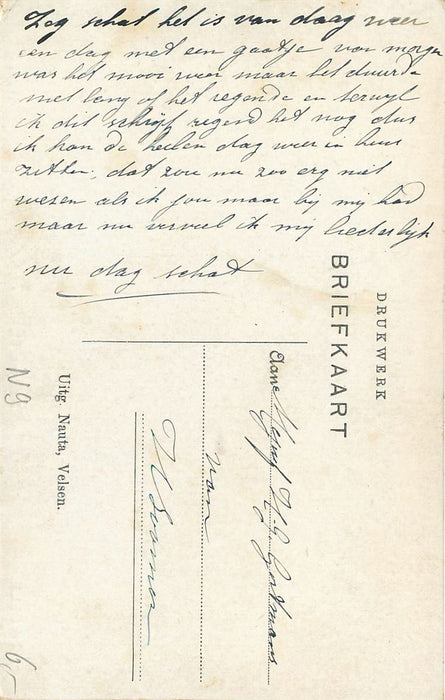 Zeg schat het is van daag weer
een dag met een gaatje van morgen
was het mooi weer maar het duurde
niet lang of het regende en terwyl
ik dit schrijf regend het nog dus
ik kan de heelen dag weer in huis
zitten, dat zou nu zoo erg niet
wezen als ik jou maar bij mij had
maar nu verveel ik mij liederlijk
nu dag schat
DRUKWERK
BRIEFKAART
Aan
van
Uitg. Nauta, Velsen.
N9
6,-